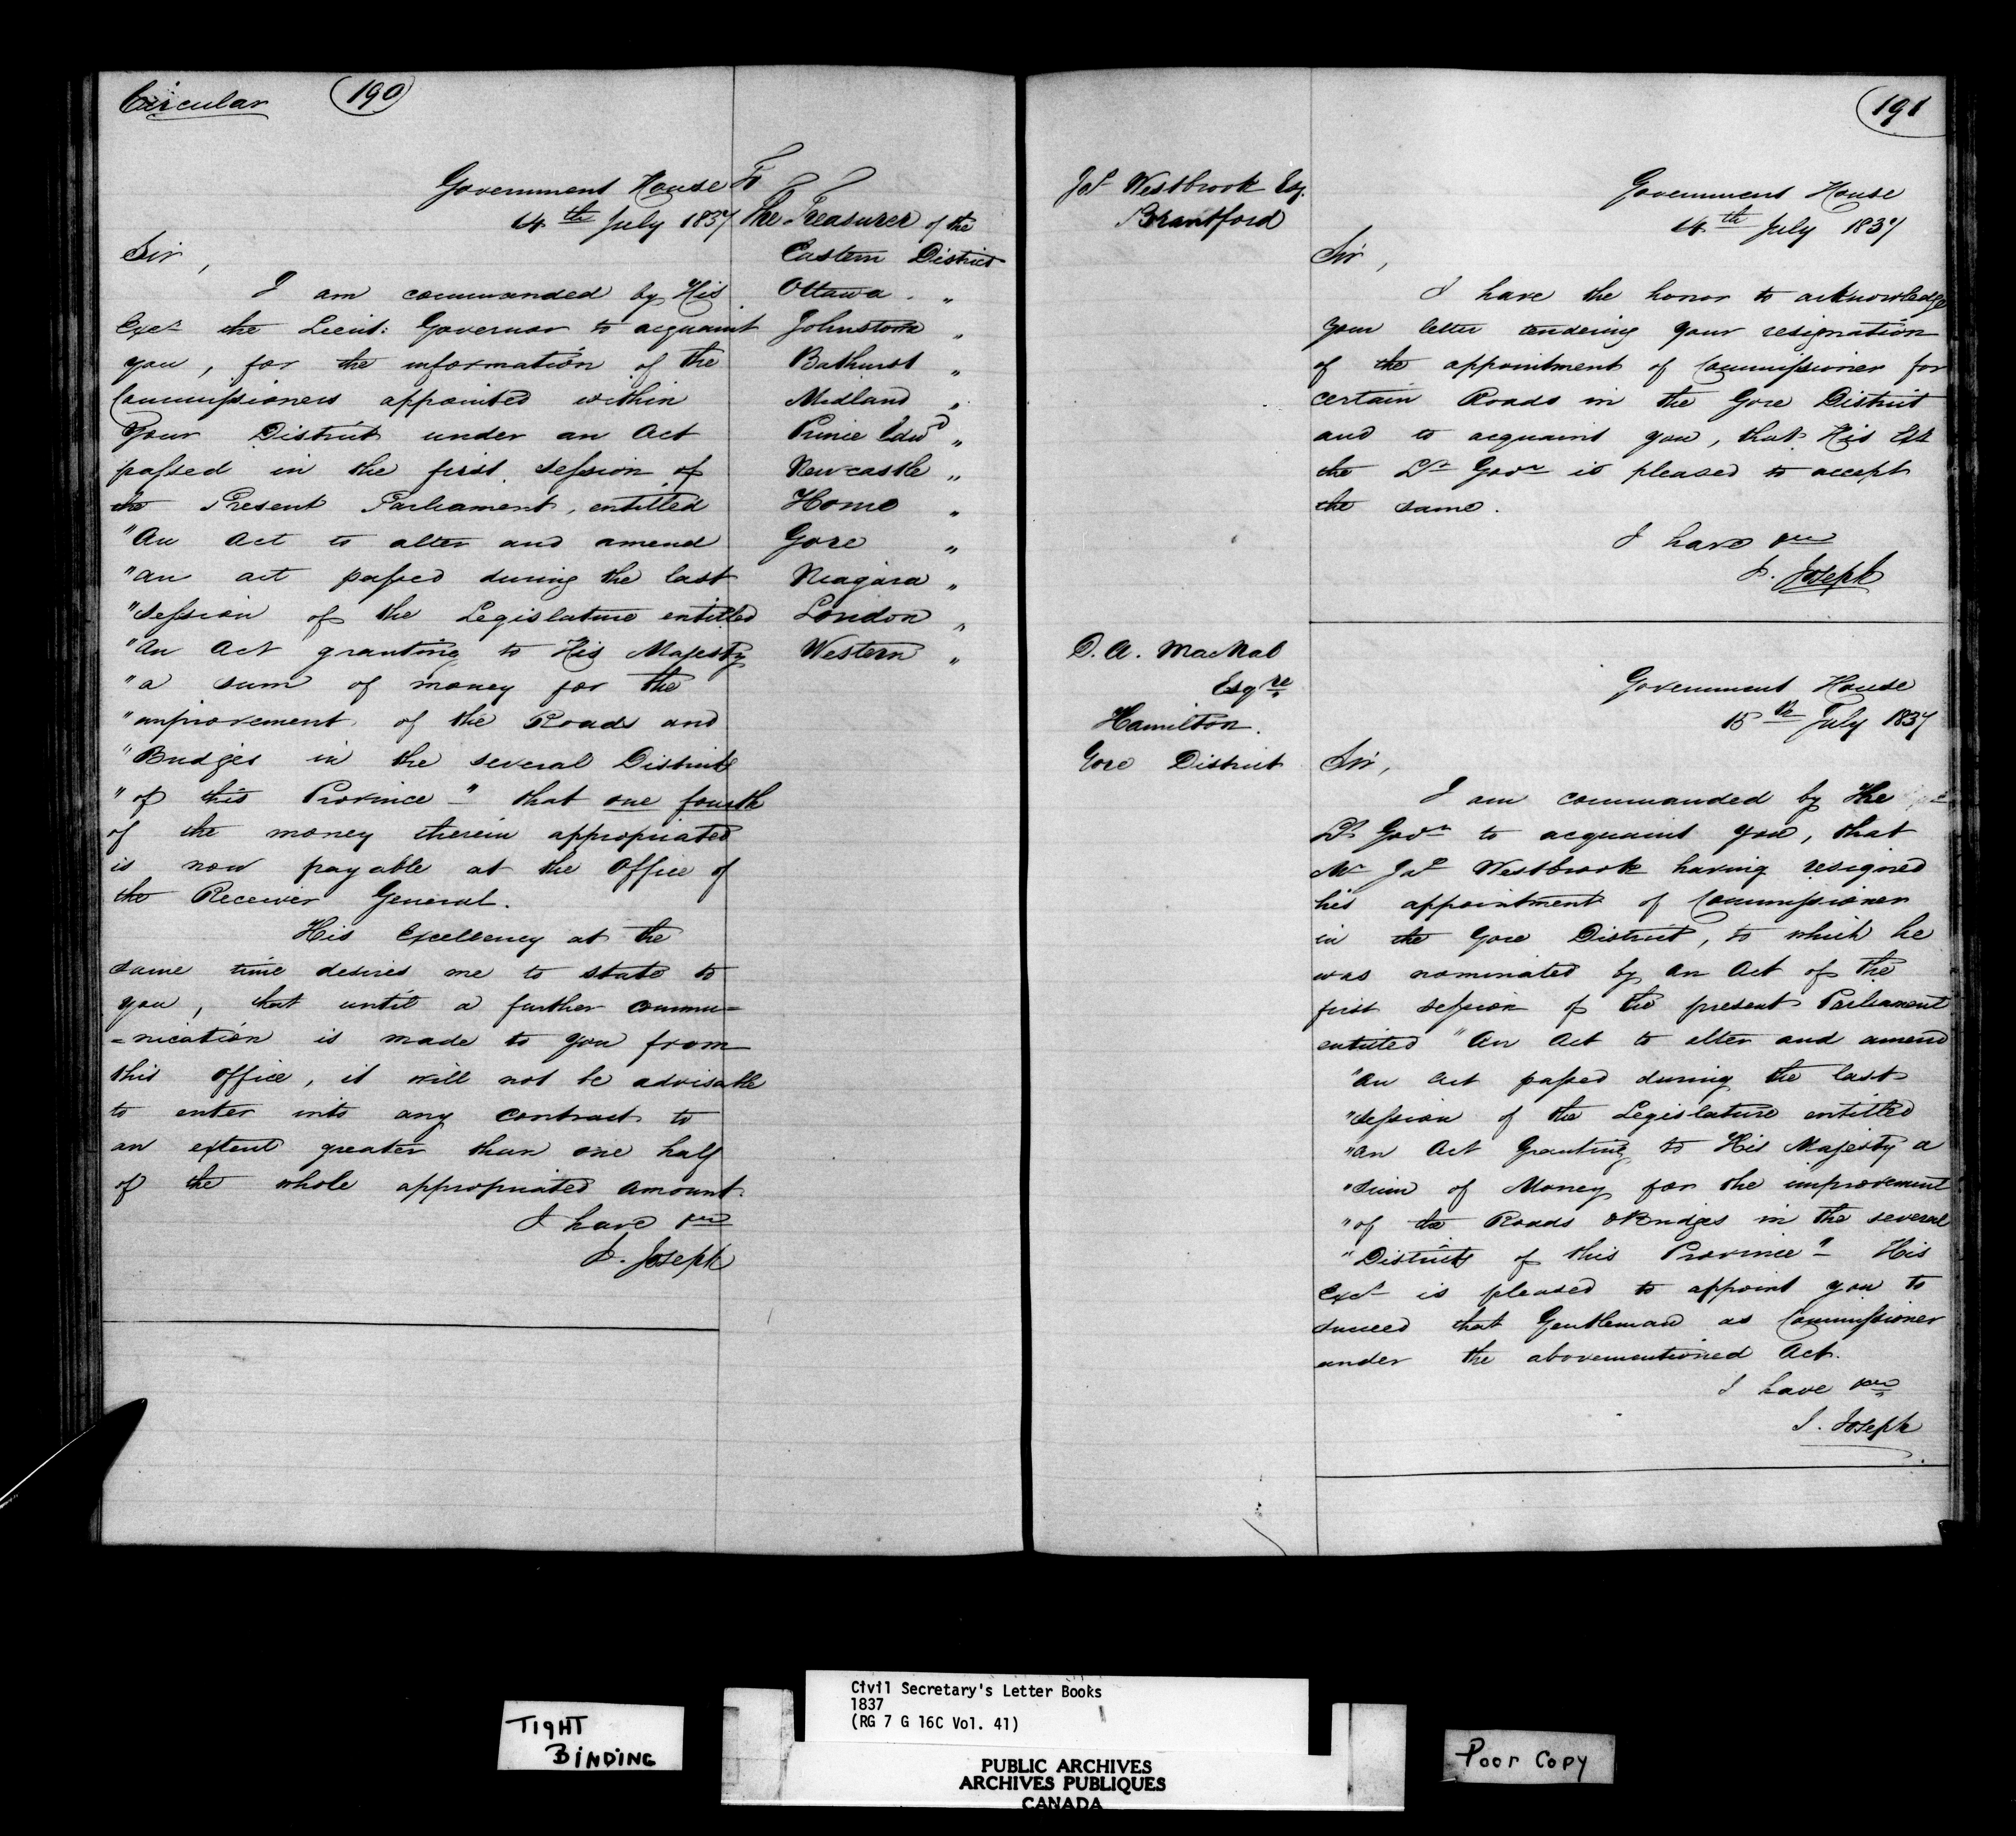 Circular
190
Government House
14th July 1837
Sir,
I am commanded by His
Excy the Lieut: Governor to acquaint
you, for the information of the
Commissioners appointed within
Your District under an Act
passed in the first Session of
the Present Parliament, entitled
"An Act to alter and amend
"an act passed during the last
"session of the Legislature entitled
"An Act granting to His Majesty
"a sum of money for the
"improvement of the Roads and
"Bridges in the several Districts
"of this Province" that one fourth
of the money therein appropriated
is now payable at the Office of
the Receiver General.
His Excellency at the
same time desires me to state to
you, that until a further commu=
=nication is made to you from
this office, it will not be advisable
to enter into any contract to
an extent greater than one half
of the whole appropriated amount
I have &c
J. Joseph
To
The Treasurer of the
Eastern District
Ottawa "
Johnstown "
Bathurst "
Midland "
Prince Edwd "
Newcastle "
Home "
Gore "
Niagara "
London "
Western "
191
Jas Westbrook Esq.
Brantford
Government House
14th July 1837
Sir,
I have the honor to acknowledge
your letter tendering your resignation
of the appointment of Commissioner for
certain Roads in the Gore District
and to acquaint you, that His Ex
the Lt Govr is pleased to accept
the same.
I have &c
J. Joseph
D. A. MacNab
Esqre
Hamilton.
Gore District
Government House
15th July 1837
Sir,
I am commanded by the
Lt Govr to acquaint you, that
Mr Jas Westbrook having resigned
his appointment of Commissioner
in the Gore District, to which he
was nominated by an Act of the
first session of the present Parliament
entitled "An Act to alter and amend
"an act passed during the last
"session of the Legislature entitled
"an Act Granting to His Majesty a
"sum of Money for the improvement
"of the Roads & Bridges in the several
"Districts of this Province" His
Excy is pleased to appoint you to
succeed that Gentleman as Commissioner
under the abovementioned Act.
I have &c
J. Joseph
TIGHT
BINDING
Civil Secretary's Letter Books
1837
(RG 7 G 16C Vol. 41)
PUBLIC ARCHIVES
ARCHIVES PUBLIQUES
CANADA
Poor Copy